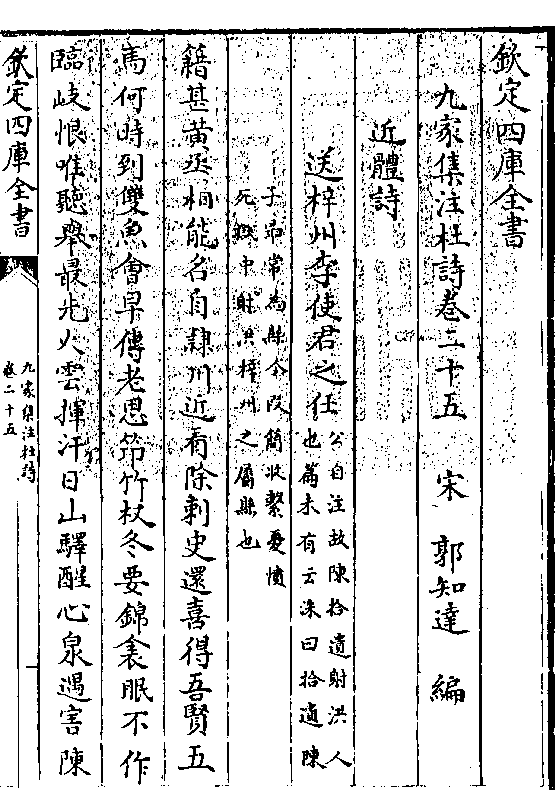 欽定四庫全書
九家集注杜詩卷二十五　宋　郭知達　編
近體詩
送梓州李使君之任
公自注故陳拾遺射洪人
也篇末有云洙曰拾遺陳
子昻常為縣令段簡收繫憂憤
死獄中射洪梓州之屬縣也
籍甚黃丞相能名自隸州近有除刺史還喜得吾賢五
馬何時到雙魚會早傳老思筇竹杖冬要錦衾眠不作
臨岐恨唯聽舉最先火雲揮汗日山驛醒心泉遇害陳
欽定四庫全書
九家集注杜詩
卷二十五